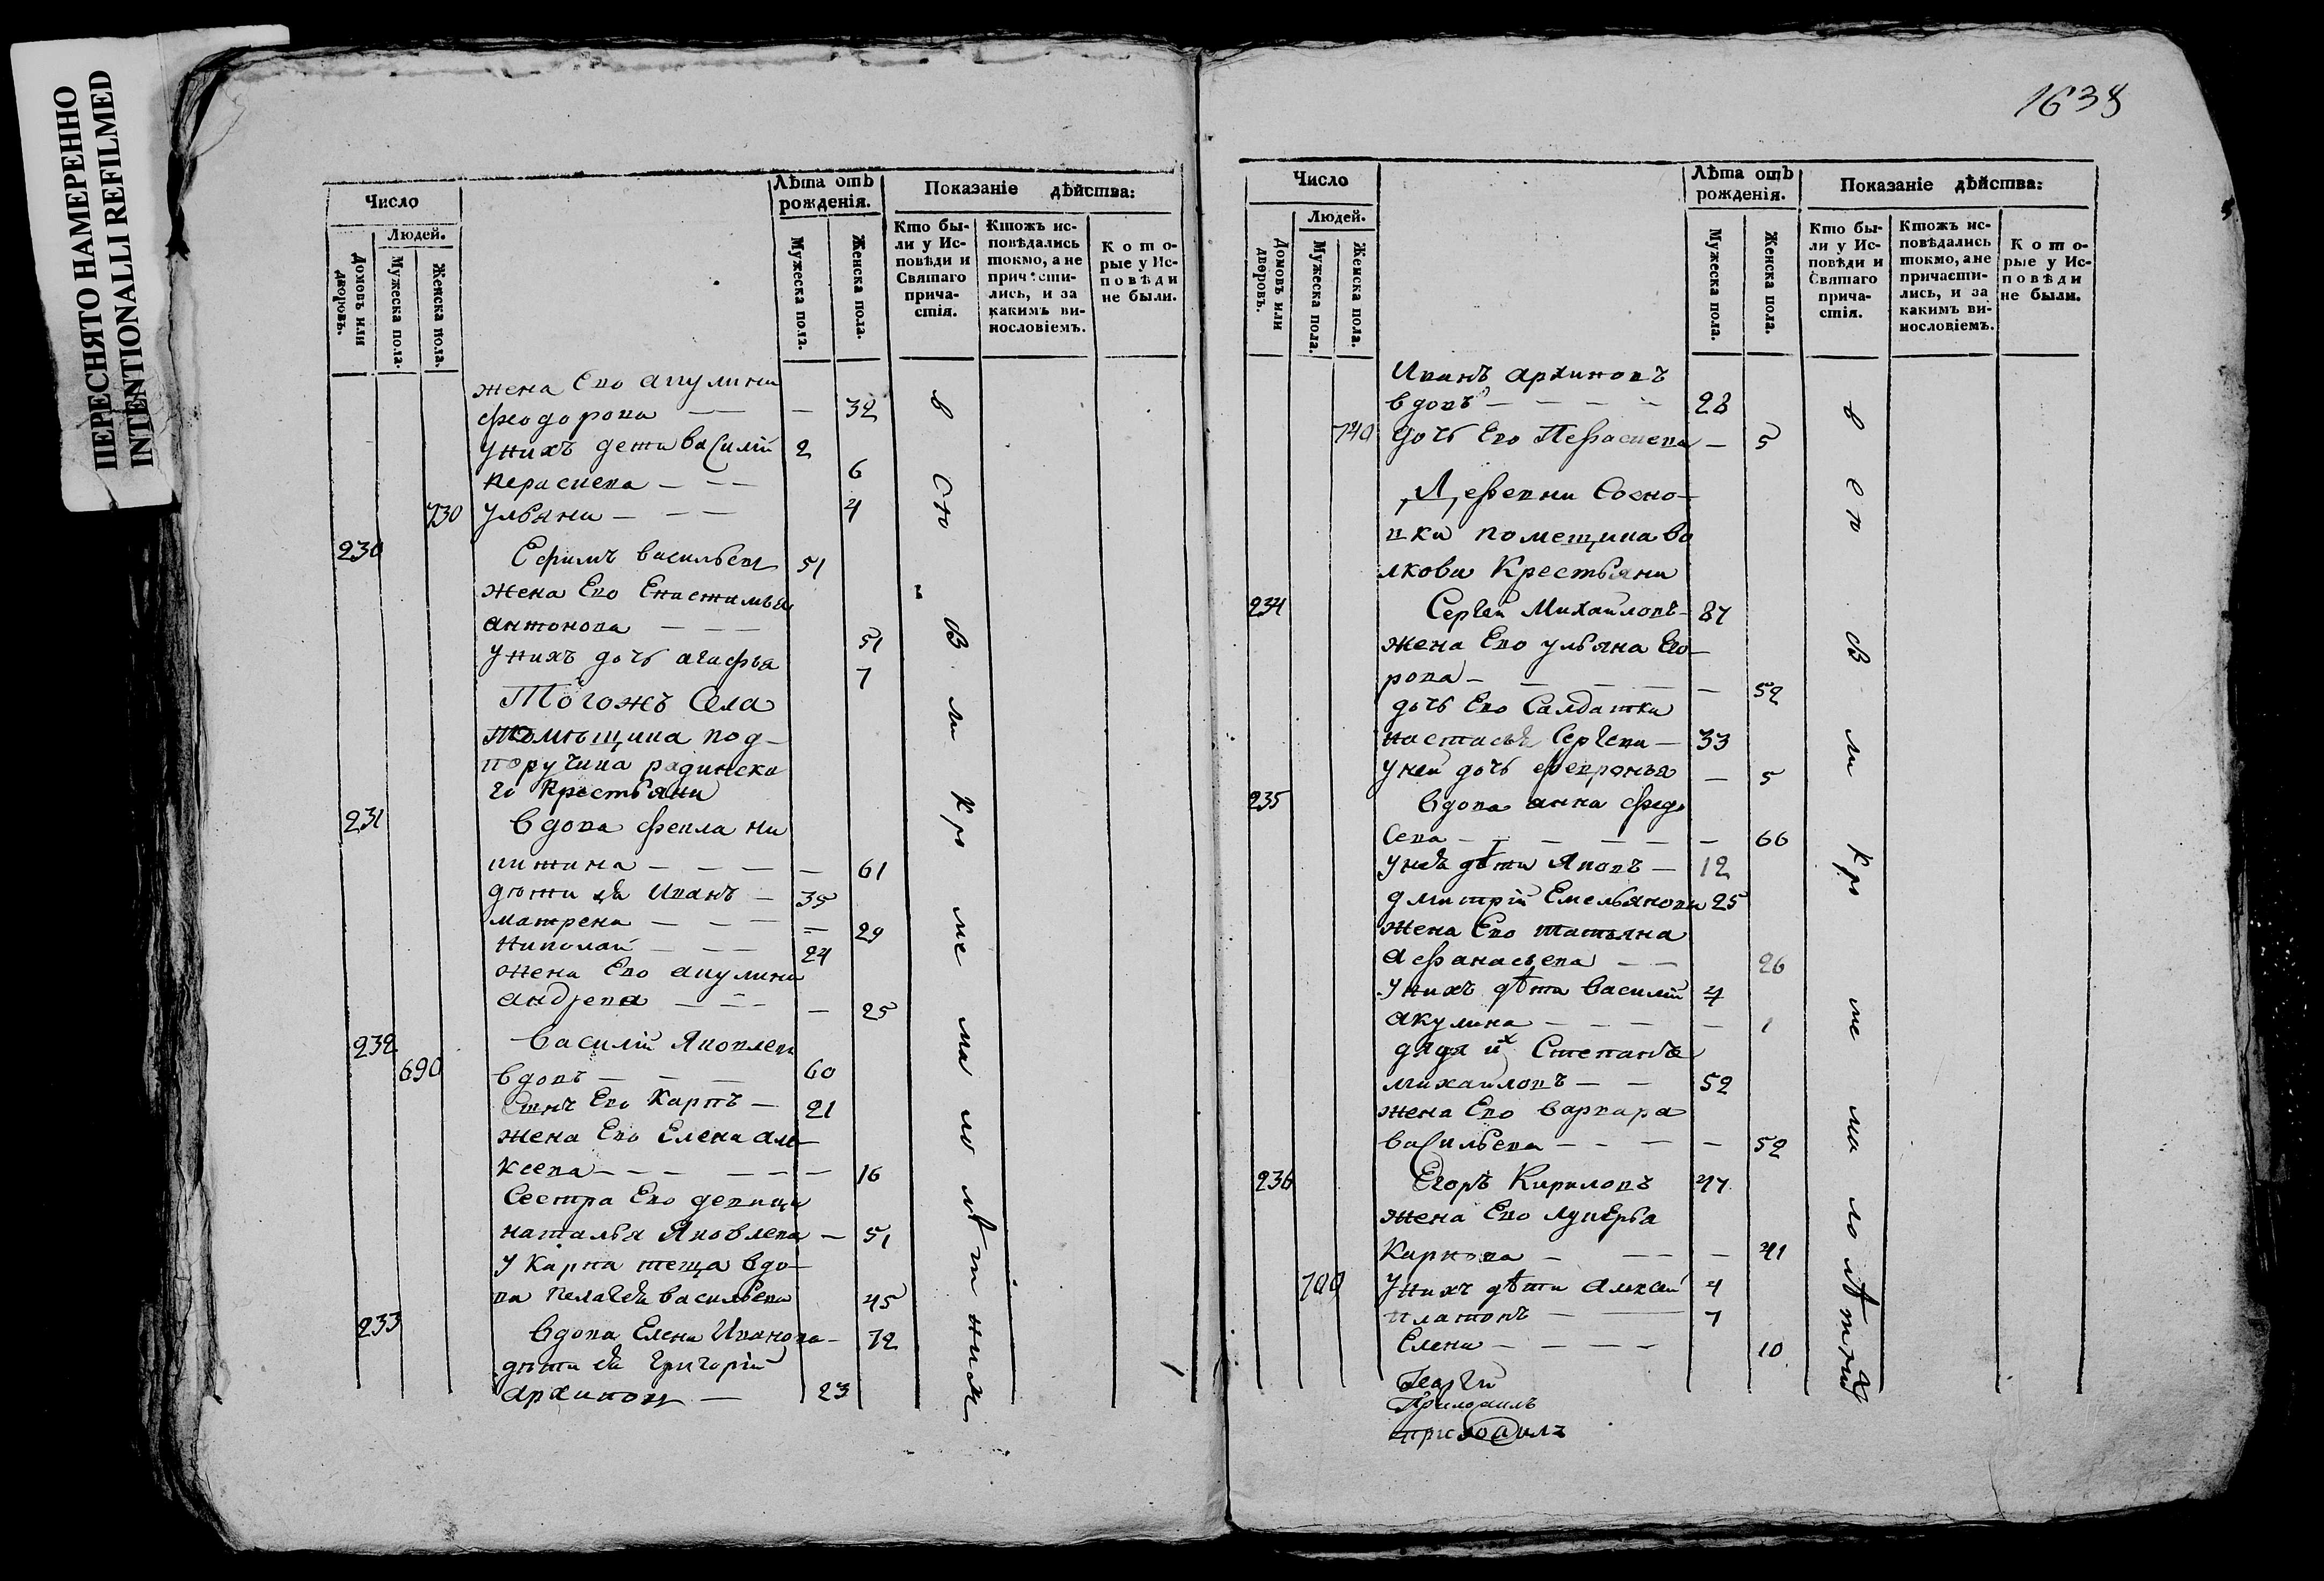 ПЕРЕСНЯТО НАМЕРЕННО
INTENTIONALLI REFILMED
Число
Лѣта отъ рожденія.
Показаніе дѣйства:
Людей.
Домовъ или дворовъ.
Мужеска пола.
Женска пола.
Мужеска пола.
Женска пола.
Кто были у Исповѣди и Святаго причастія.
Ктожъ исповѣдались токмо, а не причастились, и за какимъ винословіемъ.
Которые у Исповѣди не были.
жена Ево акулина
феодорова — — — 32
У нихъ дети василій 2
параскева — — — 6
730 Ульяна — — — 4
230 Ефимъ васильевъ 51
жена Ево
антонова — — — 51
У нихъ дочь агафья 7
Тогожъ Села
помѣщика под-
поручика радинска
го крестьяни
231 Вдова фекла ни
китина — — — — 61
дѣти ея Иванъ — 35
матрена — — — — 29
Николай — — — 24
жена Ево акулина
андрева — — — — 25
232 василій Яковлевъ
690 вдовъ — — — 60
Сынъ Ево Карпъ — 21
жена Ево Елена але-
ксева — — — — — — 16
Сестра Ево девица
наталья Яковлева — 51
У Карпа теща вдо-
ва пелагея васильева 45
233 вдова Елена Иванова — 72
дѣти ея григорій
архиповъ — 23
все
ю
в
ли
кро
ме
ма
ло
лѣ
т
ни
х
1638
Число
Лѣта отъ рожденія.
Показаніе дѣйства:
Людей.
Домовъ или дворовъ.
Мужеска пола.
Женска пола.
Мужеска пола.
Женска пола.
Кто были у Исповѣди и Святаго причастія.
Ктожъ исповѣдались токмо, а не причастились, и за какимъ винословіемъ.
Которые у Исповѣди не были.
Иванъ архиповъ
вдовъ — — — — 28
740 дочь Ево Парасковья — 5
Деревни Сосно-
вки помещика Во
лкова Крестьяни
234 Сергей Михайловъ — 87
жена Ево ульяна Его-
рова — — — — — 52
дочь Ево Салдатка
настасья Сергева — 33
у ней дочь февронья — 5
235 вдова анна фед
сева — — — — — — 66
у неѣ дѣти Яковъ — 12
дмитрій Емельяновы 25
жена Ево татьяна
афанасьева — — 26
У нихъ дѣти василій 4
акулина — — — — 1
дядя их Степанъ
михайловъ — — 52
жена Ево варвара
васильева — — — — 52
236 Егоръ Кириловъ 47
жена Ево лукерья
Карпова — — — — 41
700 У нихъ дѣти алексей 4
платонъ — — 7
Елена — — — — 10
ли
кро
ме
ма
ло
лѣ